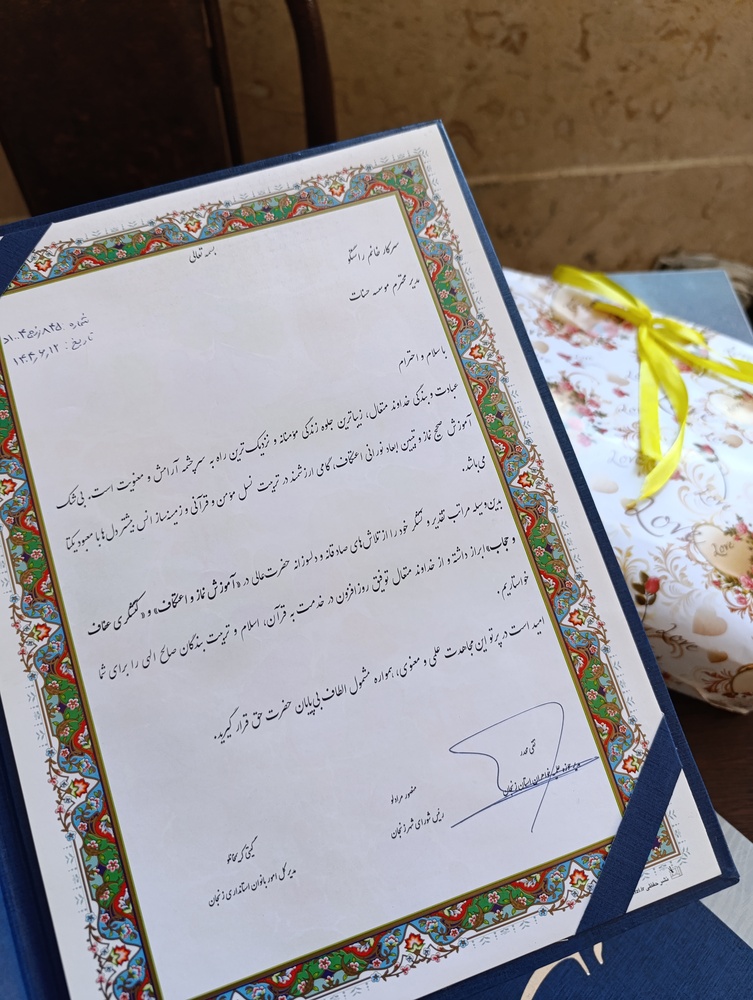 بسمه تعالی
سرکار خانم راستگو
مدیر محترم موسسه حسنات
شماره:
تاریخ: ۱۴۰۴٫۶٫۱۲
با سلام و احترام
عبادت و بندگی خداوند متعال، زیباترین جلوه زندگی مؤمنانه و نزدیک‌ترین راه به سرچشمه آرامش و معنویت است. بی‌شک
آموزش صحیح نماز و تبیین ابعاد نورانی اعتکاف، گامی ارزشمند در تربیت نسل مؤمن و قرآنی و زمینه‌ساز انس بیشتر دل‌ها با معبود یکتا
می‌باشد.
بدین‌وسیله مراتب تقدیر و تشکر خود را از تلاش‌های صادقانه و دلسوزانه حضرت‌عالی در «آموزش نماز و اعتکاف» و «کنشگری عفاف
و حجاب» ابراز داشته و از خداوند متعال توفیق روزافزون در خدمت به قرآن، اسلام و تربیت بندگان صالح الهی را برای شما
خواستاریم.
امید است در پرتو این مجاهدت علمی و معنوی، همواره مشمول الطاف بی‌پایان حضرت حق قرار گیرید.
مدیر حوزه علمیه خواهران استان زنجان
منصور مرادلو
رئیس شورای شهر زنجان
مدیر کل امور بانوان استانداری زنجان
Love
Love
Love